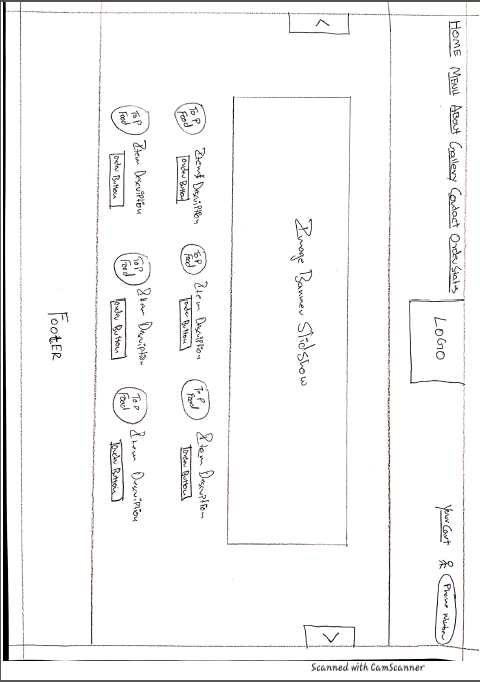 HOME MENU About Gallery Contact Order States
LOGO
Your Cart
Phone Number
Image Banner SlidShow
Top
Food
Items Description
Order Button
Top
Food
Item Description
Order Button
Top
Food
Item Description
Order Button
Top
Food
Item Description
Order Button
Top
Food
Item Description
Order Button
Top
Food
Item Description
Order Button
FOOTER
Scanned with CamScanner